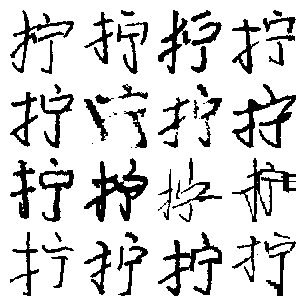 拧拧拧拧
拧拧拧拧
拧拧拧拧
拧拧拧拧